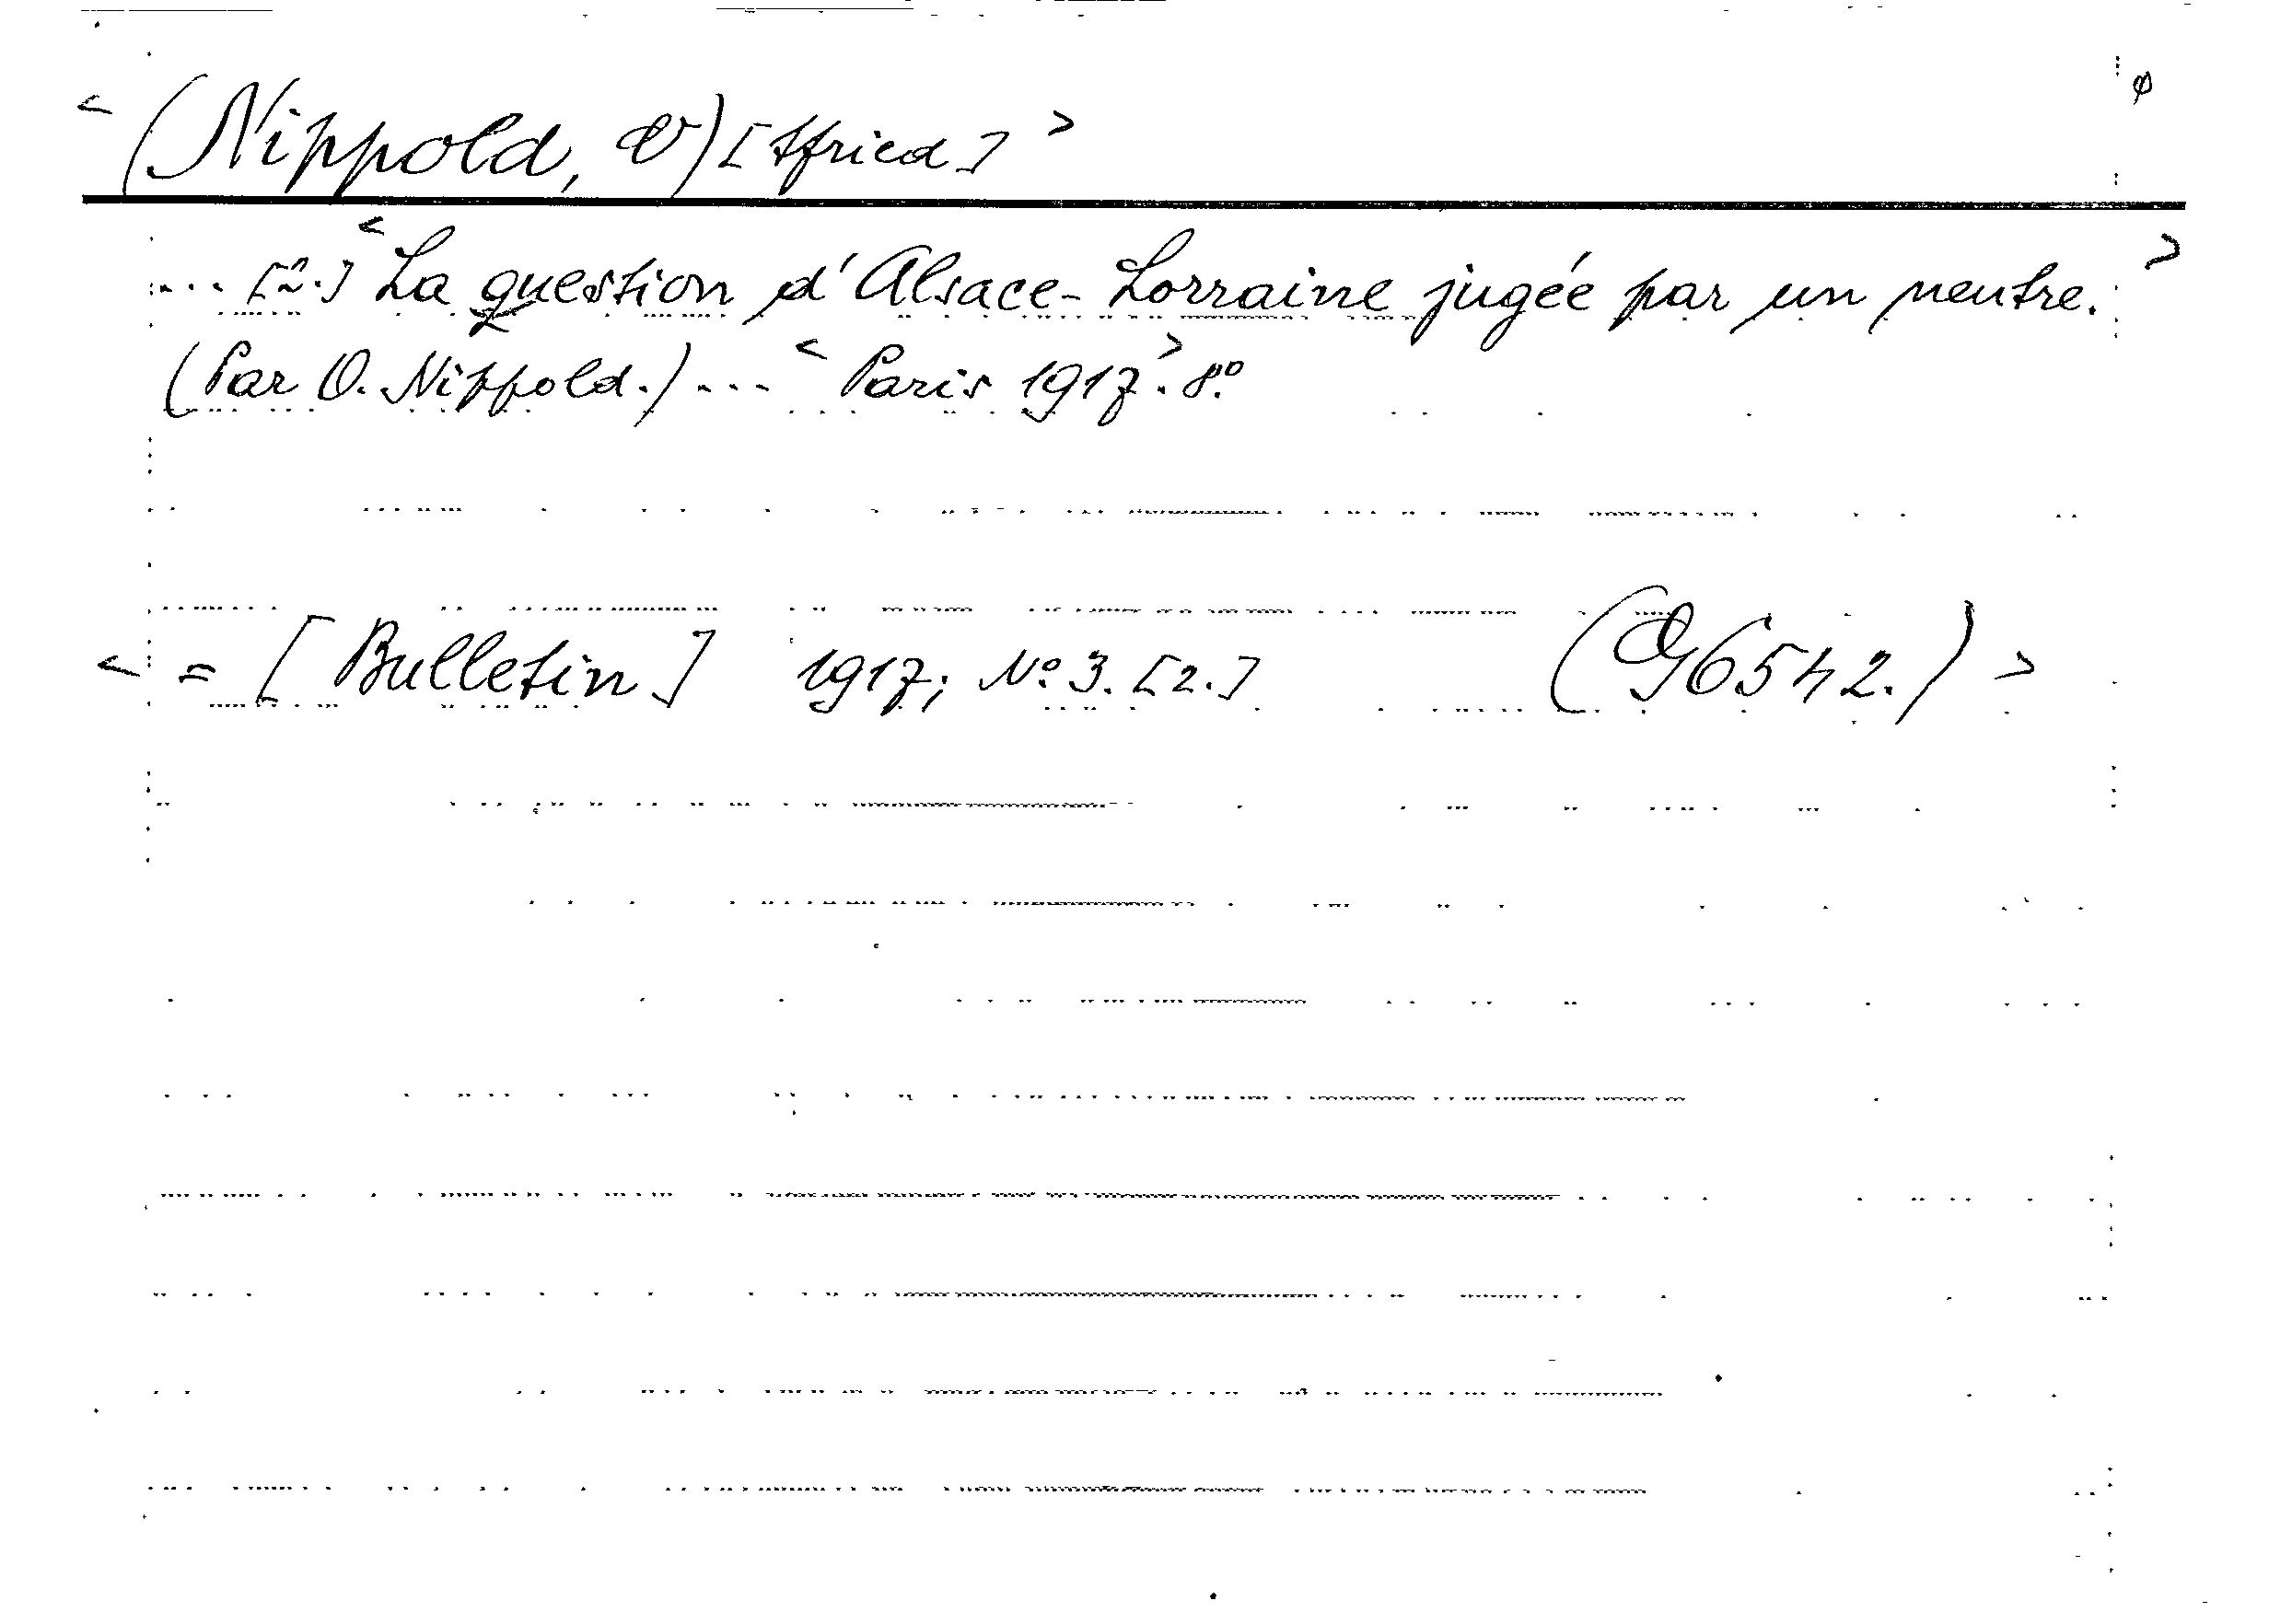 < (Nippold, O) [ttfried] > φ
... [2.] < La question d'Alsace-Lorraine jugée par un neutre. >
(Par O. Nippold.) ... < Paris 1917 >. 8.º
< = [Bulletin] 1917; Nº 3. [2.] (Og6542.) >